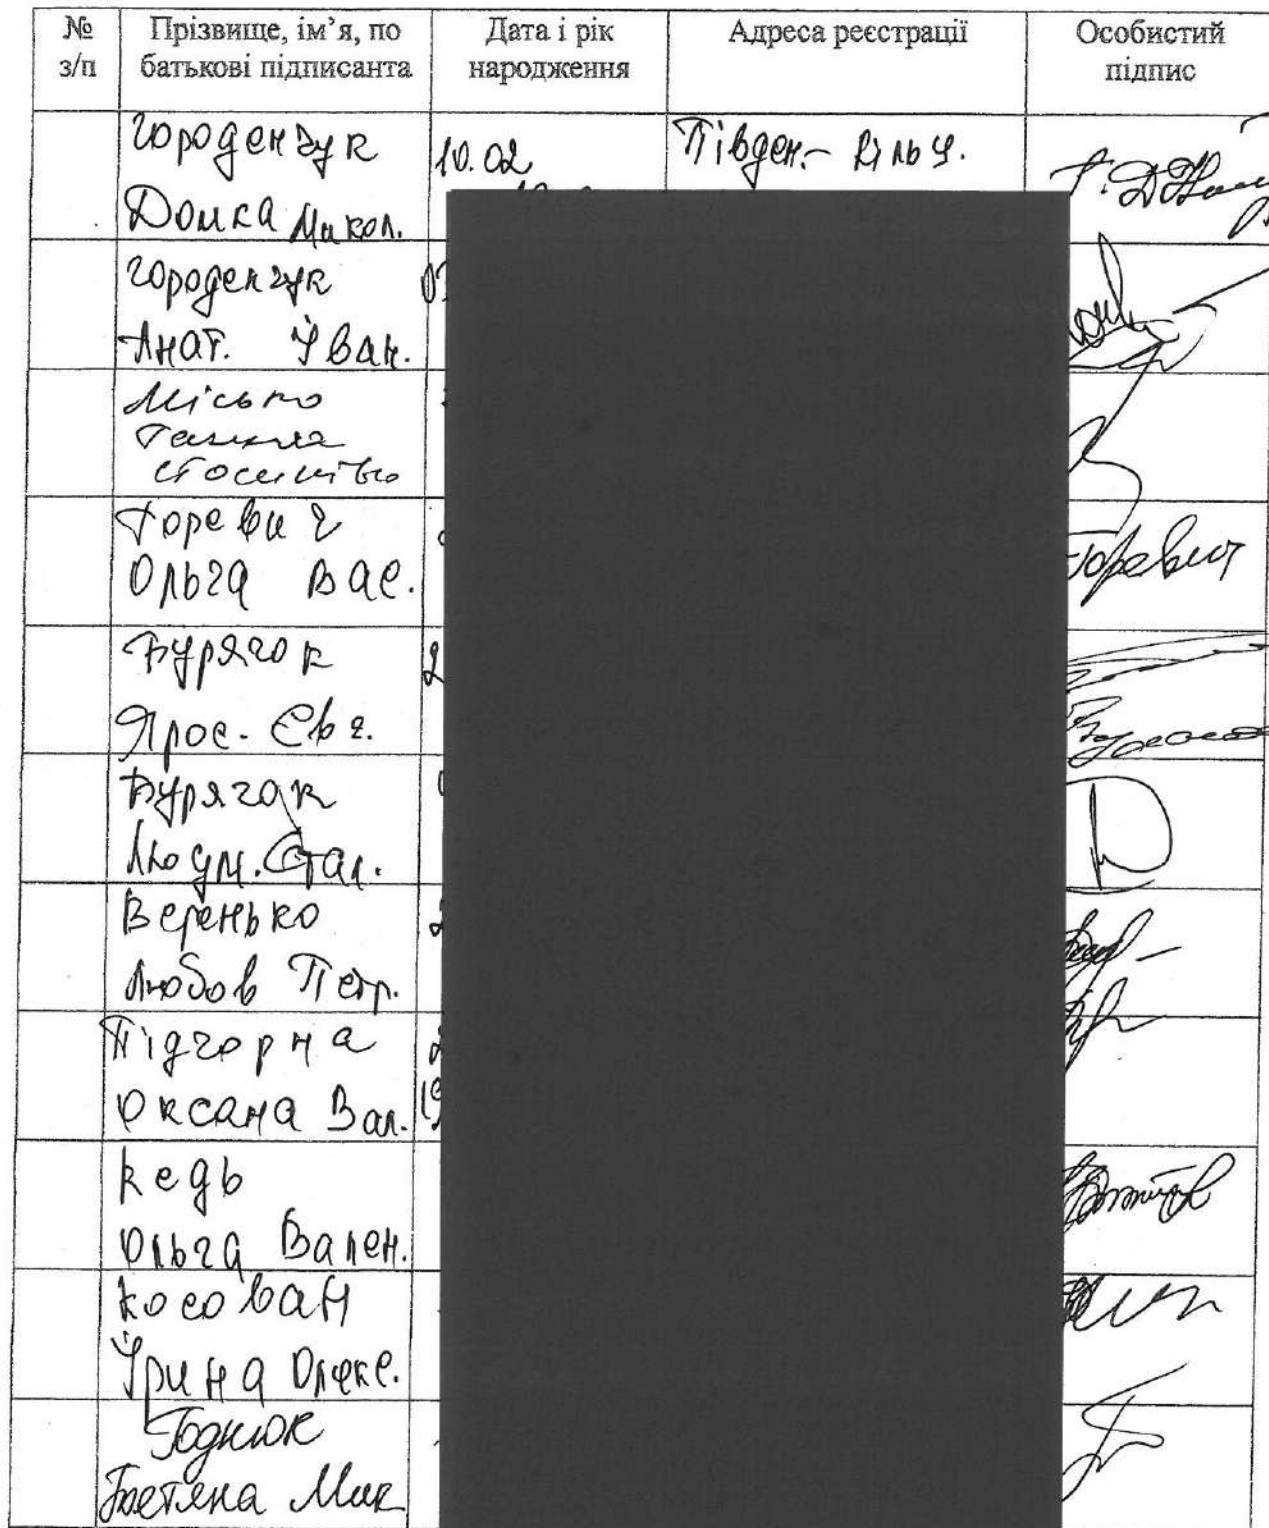 № з/п
Прізвище, ім’я, по батькові підписанта
Дата і рік народження
Адреса реєстрації
Особистий підпис
Городенчук
Домка Микол.
10.02
Півден.- Кільц.
Городенчук
Анат. Іван.
Місько
Горевич
Ольга Вас.
Горевич
Бурячок
Ярос. Євг.
Бурячок
Людм. Стал.
Веренько
Любов Петр.
Підгорна
Оксана Вал.
19
Кедь
Ольга Вален.
Косован
Ірина Олекс.
Годнюк
Тетяна Мик